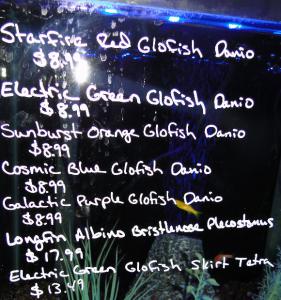 Starfire Red Glofish Danio
$8.99
Electric Green Glofish Danio
$8.99
Sunburst Orange Glofish Danio
$8.99
Cosmic Blue Glofish Danio
$8.99
Galactic Purple Glofish Danio
$8.99
Longfin Albino Bristlenose Plecostomus
$17.99
Electric Green Glofish Skirt Tetra
$13.49